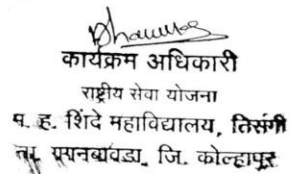 कार्यक्रम अधिकारी
राष्ट्रीय सेवा योजना
प. ह. शिंदे महाविद्यालय, तिसंगी
ता. गगनबावडा, जि. कोल्हापूर